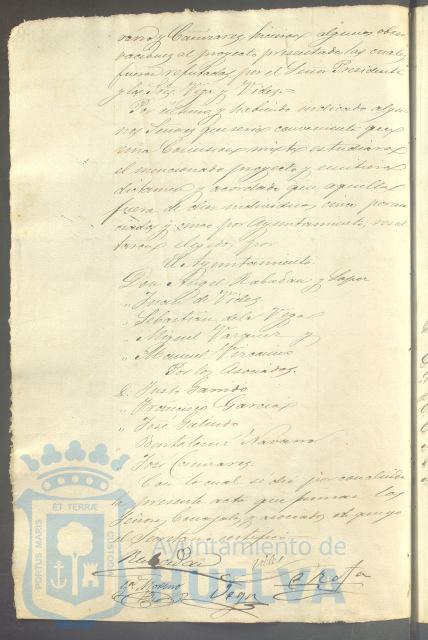 rano y Cañizares hicieron algunas obser
vaciones al proyecto presentado, las cuales
fueron refutadas por el Señor Presidente
y los Sres. Vega y Vides.
Por último y habiendo indicado algu
nos Señores que sería conveniente que
una Comision mixta estudiara
el mencionado proyecto y emitiera
dictamen y acordado que aquella
fuera de diez individuos, cinco por aso
ciados y cinco por Ayuntamiento, resul
taron elegidos por
El Ayuntamiento.
Don Angel Rabadan y Lopez
" Juan de Vides
" Sebastian de la Vega
" Miguel Vazquez y
" Manuel Vizcaino
Por los Asociados.
D. Justo Garrido
" Francisco Garcia
" José Galindo
" Bartolomé Navarro
" José Cañizares.
Con lo cual se dio por concluida
la presente acta que firman los
Señores Concejales y asociados
el Secretario certifico
Vides
Vega
PORTUS MARIS
ET TERRÆ
CUSTODIA
Ayuntamiento de
HUELVA